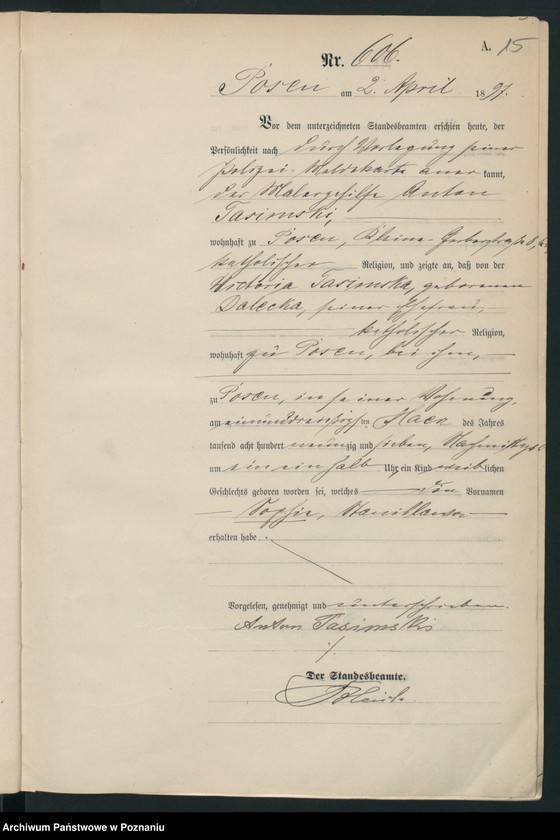 A. 15
Nr. 606.
Posen am 2. April 1897.
Vor dem unterzeichneten Standesbeamten erschien heute, der
Persönlichkeit nach durch Vorlegung seiner
Polizei-Meldekarte aner kannt,
der Malergehilfe Anton
Tasimski,
wohnhaft zu Posen, Kleine Gerberstraße 8,
katholischer Religion, und zeigte an, daß von der
Victoria Tasimska, geborenen
Dalecka, seiner Ehefrau,
katholischer Religion,
wohnhaft zu Posen, bei ihm,
zu Posen, in seiner Wohnung,
am einunddreißigsten Maerz des Jahres
tausend acht hundert neunzig und sieben, Nachmittags
um ein einhalb Uhr, ein Kind weiblichen
Geschlechts geboren worden sei, welches den Vornamen
Sophie, Stanislawa
erhalten habe.
Vorgelesen, genehmigt und unterschrieben.
Anton Tasimski
Der Standesbeamte.
Archiwum Państwowe w Poznaniu